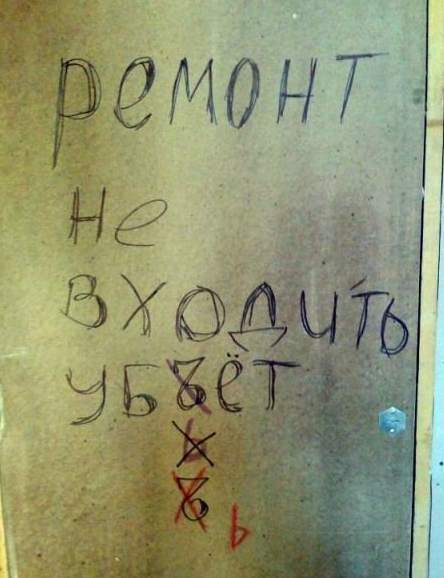 ремонт
не
входить
убъёт
ь
ъ ь